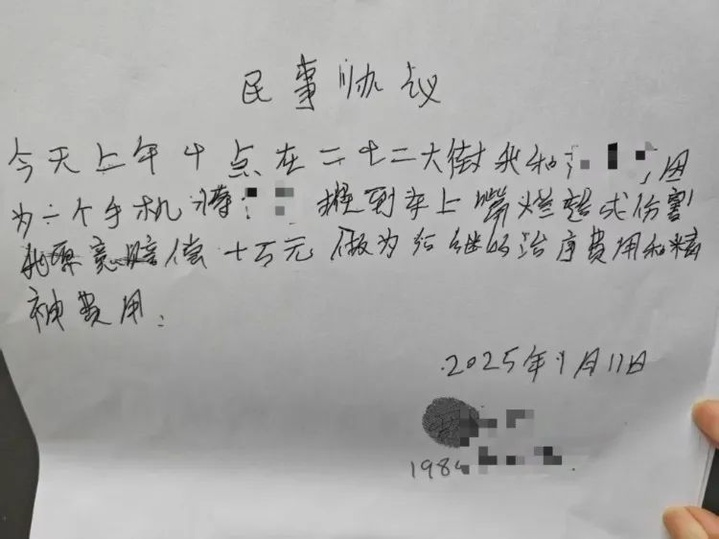 民事协议
今天上午十点在二十二大街我和,因
为一个手机将 摁到车上嘴烂
我愿意赔偿十万元做为后继的治疗费用和精
神费用.
2025年1月11日
198